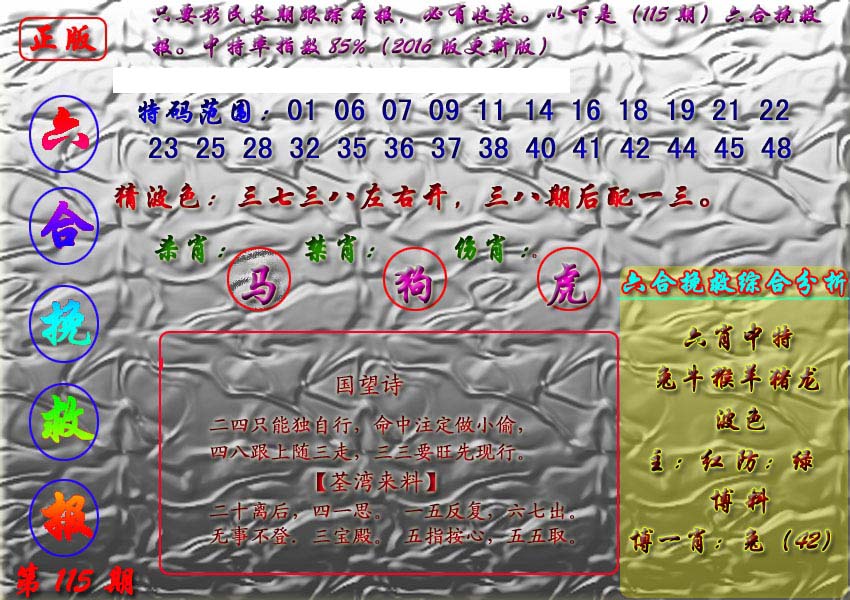 正版
只要彩民长期跟踪本报，必有收获。以下是（115 期）六合挽救
报。中特率指数 85%（2016 版更新版）
六合挽救报
第 115 期
特码范围：01 06 07 09 11 14 16 18 19 21 22
23 25 28 32 35 36 37 38 40 41 42 44 45 48
猜波色：三七三八左右开，三八期后配一三。
杀肖：马 禁肖：狗 伤肖：虎
国望诗
二四只能独自行，命中注定做小偷，
四八跟上随三走，三三要旺先现行。
【荃湾来料】
二十离后，四一思。 一五反复，六七出。
无事不登．三宝殿。 五指按心，五五取。
六合挽救综合分析
六肖中特
兔牛猴羊猪龙
波色
主：红防：绿
博料
博一肖：兔（42）